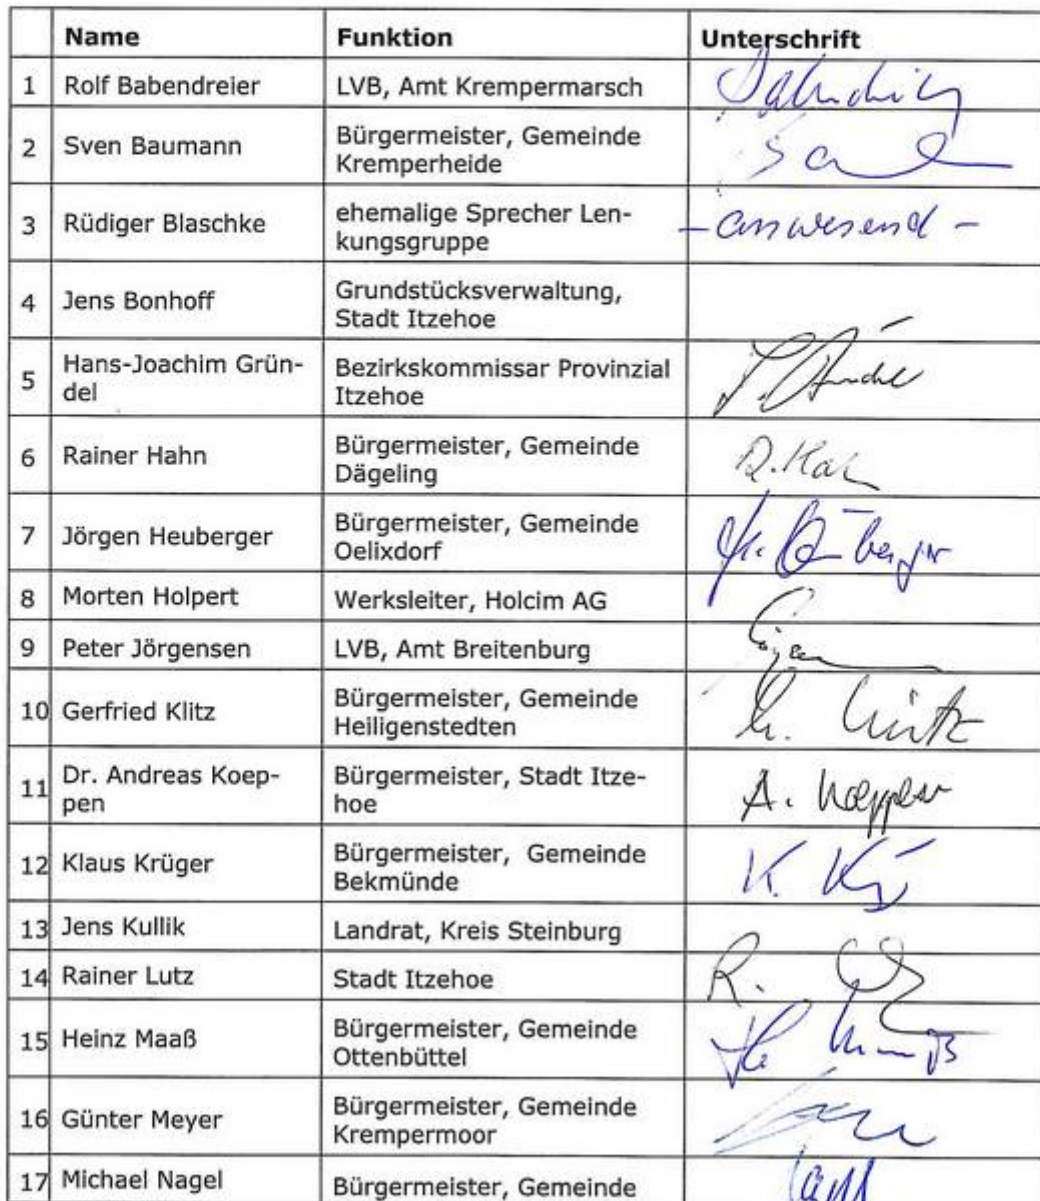 Name Funktion Unterschrift
1 Rolf Babendreier LVB, Amt Krempermarsch
2 Sven Baumann Bürgermeister, Gemeinde
Kremperheide
3 Rüdiger Blaschke ehemalige Sprecher Len-
kungsgruppe
- anwesend -
4 Jens Bonhoff Grundstücksverwaltung,
Stadt Itzehoe
5 Hans-Joachim Grün-
del
Bezirkskommissar Provinzial
Itzehoe
6 Rainer Hahn Bürgermeister, Gemeinde
Dägeling
R. Hahn
7 Jörgen Heuberger Bürgermeister, Gemeinde
Oelixdorf
8 Morten Holpert Werksleiter, Holcim AG
9 Peter Jörgensen LVB, Amt Breitenburg
10 Gerfried Klitz Bürgermeister, Gemeinde
Heiligenstedten
11 Dr. Andreas Koep-
pen
Bürgermeister, Stadt Itze-
hoe
A. Koeppen
12 Klaus Krüger Bürgermeister, Gemeinde
Bekmünde
13 Jens Kullik Landrat, Kreis Steinburg
14 Rainer Lutz Stadt Itzehoe
15 Heinz Maaß Bürgermeister, Gemeinde
Ottenbüttel
16 Günter Meyer Bürgermeister, Gemeinde
Krempermoor
17 Michael Nagel Bürgermeister, Gemeinde